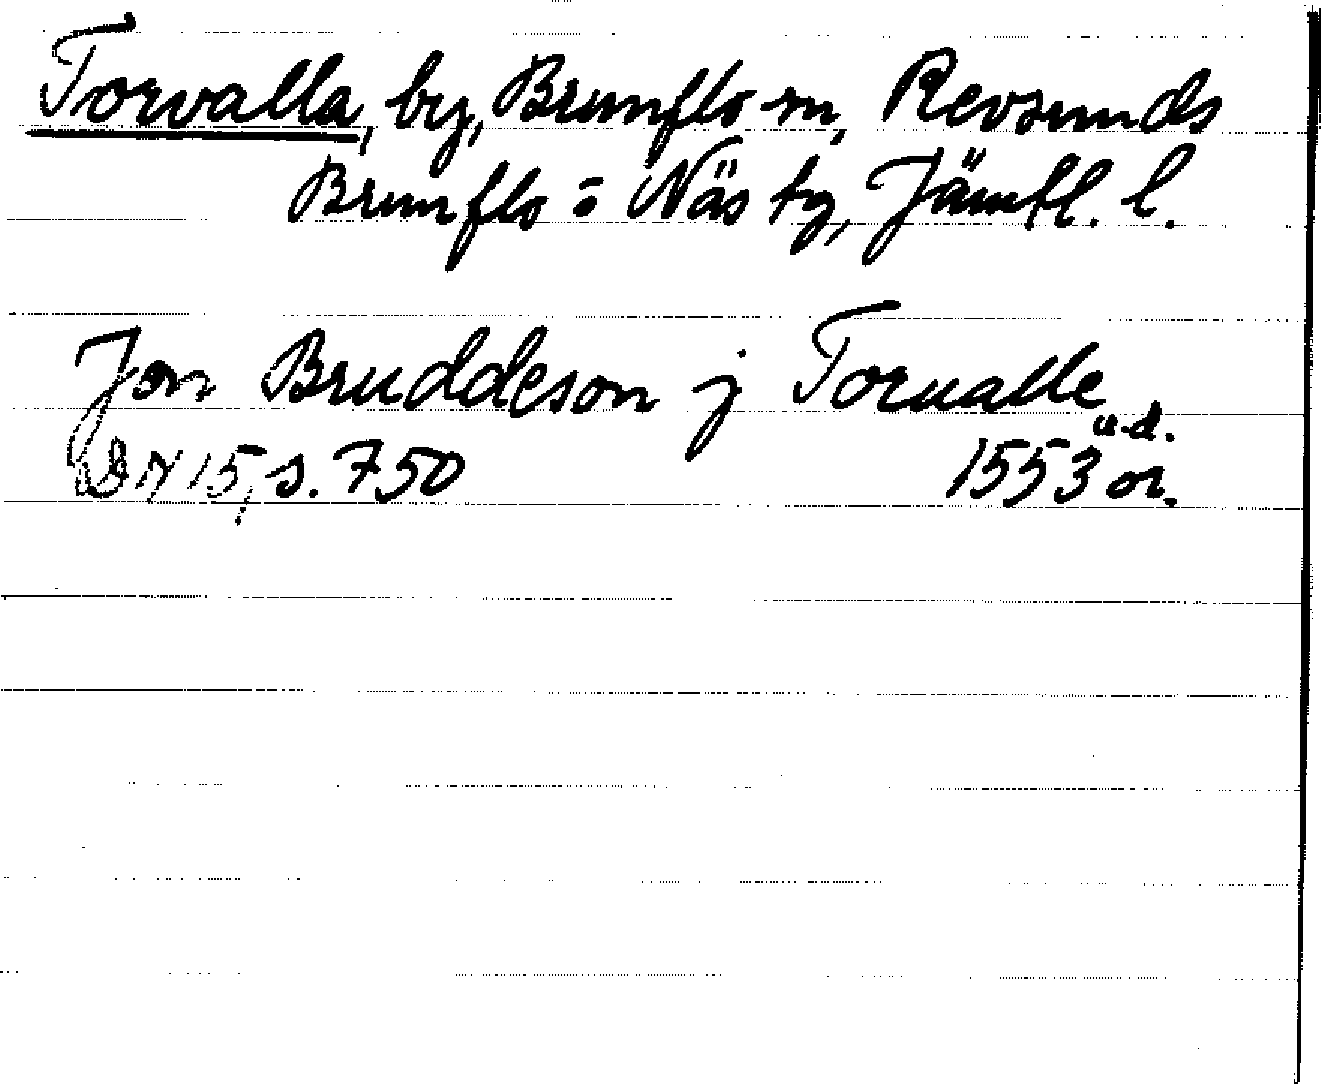 Torvalla, by, Brunflo sn, Revsunds
Brunflo o Näs tg, Jämtl. l.
Jon Bruddeson j Torualle
u.d.
DN 15, s. 750 1553 or.